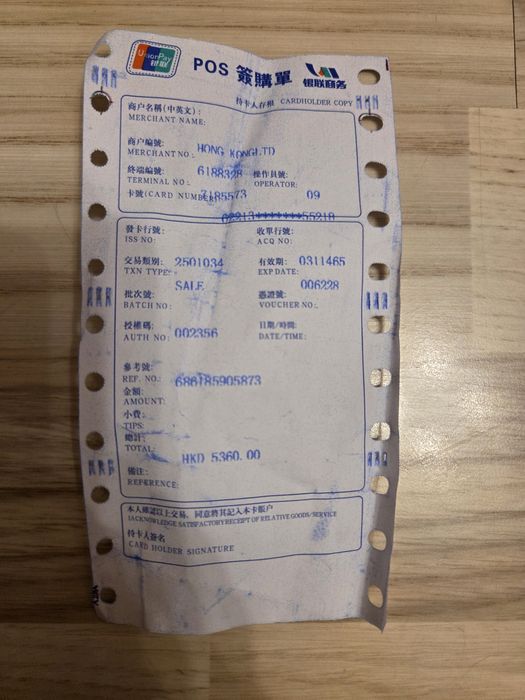 UnionPay
银联
POS 簽購單
银联商务
持卡人存根 CARDHOLDER COPY
商户名稱(中英文):
MERCHANT NAME:
商户編號:
MERCHANT NO.: HONG KONGLTD
終端編號: 6188328 操作員號:
TERMINAL NO.: OPERATOR:
卡號(CARD NUMBER) 7185573 09
02213*******55218
發卡行號: 收單行號:
ISS NO: ACQ NO:
交易類別: 2501034 有效期: 0311465
TXN TYPE: EXP DATE:
SALE 006228
批次號: 憑證號:
BATCH NO: VOUCHER NO.:
授權碼: 日期/時間:
AUTH NO: 002356 DATE/TIME:
參考號:
REF. NO.: 686185905873
金額:
AMOUNT:
小費:
TIPS:
總計:
TOTAL: HKD 5360.00
備注:
REFERENCE:
本人確認以上交易, 同意將其記入本卡賬户
IACKNOWLEDGE SATISFACTORYRECEIPT OF RELATIVE GOODS/SERVICE
持卡人簽名
CARD HOLDER SIGNATURE